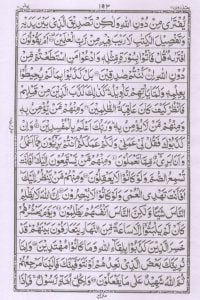 ١٥٣
يُّفْتَرٰى مِنْ دُوْنِ اللّٰهِ وَلٰكِنْ تَصْدِيْقَ الَّذِيْ بَيْنَ يَدَيْهِ
وَتَفْصِيْلَ الْكِتٰبِ لَا رَيْبَ فِيْهِ مِنْ رَّبِّ الْعٰلَمِيْنَ اَمْ يَقُوْلُوْنَ
افْتَرٰىهُ قُلْ فَاْتُوْا بِسُوْرَةٍ مِّثْلِهٖ وَادْعُوْا مَنِ اسْتَطَعْتُمْ مِّنْ
دُوْنِ اللّٰهِ اِنْ كُنْتُمْ صٰدِقِيْنَ بَلْ كَذَّبُوْا بِمَا لَمْ يُحِيْطُوْا
بِعِلْمِهٖ وَلَمَّا يَاْتِهِمْ تَاْوِيْلُهٗ كَذٰلِكَ كَذَّبَ الَّذِيْنَ مِنْ قَبْلِهِمْ
فَانْظُرْ كَيْفَ كَانَ عَاقِبَةُ الظّٰلِمِيْنَ وَمِنْهُمْ مَّنْ يُّؤْمِنُ بِهٖ
وَمِنْهُمْ مَّنْ لَّا يُؤْمِنُ بِهٖ وَرَبُّكَ اَعْلَمُ بِالْمُفْسِدِيْنَ وَاِنْ
كَذَّبُوْكَ فَقُلْ لِّيْ عَمَلِيْ وَلَكُمْ عَمَلُكُمْ اَنْتُمْ بَرِيْٓـُٔوْنَ مِمَّآ اَعْمَلُ
وَاَنَا بَرِيْٓءٌ مِّمَّا تَعْمَلُوْنَ وَمِنْهُمْ مَّنْ يَّسْتَمِعُوْنَ اِلَيْكَ اَفَاَنْتَ
تُسْمِعُ الصُّمَّ وَلَوْ كَانُوْا لَا يَعْقِلُوْنَ وَمِنْهُمْ مَّنْ يَّنْظُرُ اِلَيْكَ
اَفَاَنْتَ تَهْدِي الْعُمْيَ وَلَوْ كَانُوْا لَا يُبْصِرُوْنَ اِنَّ اللّٰهَ لَا يَظْلِمُ
النَّاسَ شَيْـًٔا وَّلٰكِنَّ النَّاسَ اَنْفُسَهُمْ يَظْلِمُوْنَ وَيَوْمَ يَحْشُرُهُمْ
كَاَنْ لَّمْ يَلْبَثُوْٓا اِلَّا سَاعَةً مِّنَ النَّهَارِ يَتَعَارَفُوْنَ بَيْنَهُمْ قَدْ
خَسِرَ الَّذِيْنَ كَذَّبُوْا بِلِقَآءِ اللّٰهِ وَمَا كَانُوْا مُهْتَدِيْنَ وَاِمَّا
نُرِيَنَّكَ بَعْضَ الَّذِيْ نَعِدُهُمْ اَوْ نَتَوَفَّيَنَّكَ فَاِلَيْنَا مَرْجِعُهُمْ
ثُمَّ اللّٰهُ شَهِيْدٌ عَلٰى مَا يَفْعَلُوْنَ وَلِكُلِّ اُمَّةٍ رَّسُوْلٌ فَاِذَا